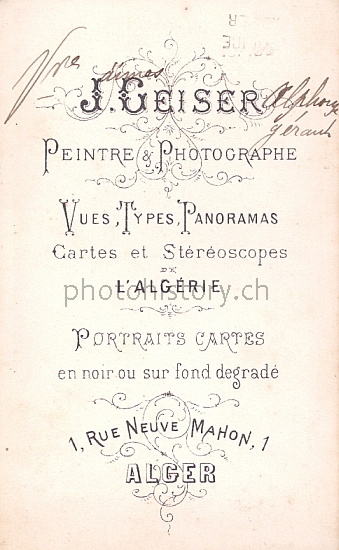 J. GEISER
Alphonse
gérant
PEINTRE & PHOTOGRAPHE
VUES, TYPES, PANORAMAS
Cartes et Stéréoscopes
DE
L'ALGÉRIE
photohistory.ch
PORTRAITS CARTES
en noir ou sur fond degradé
1, RUE NEUVE MAHON, 1
ALGER